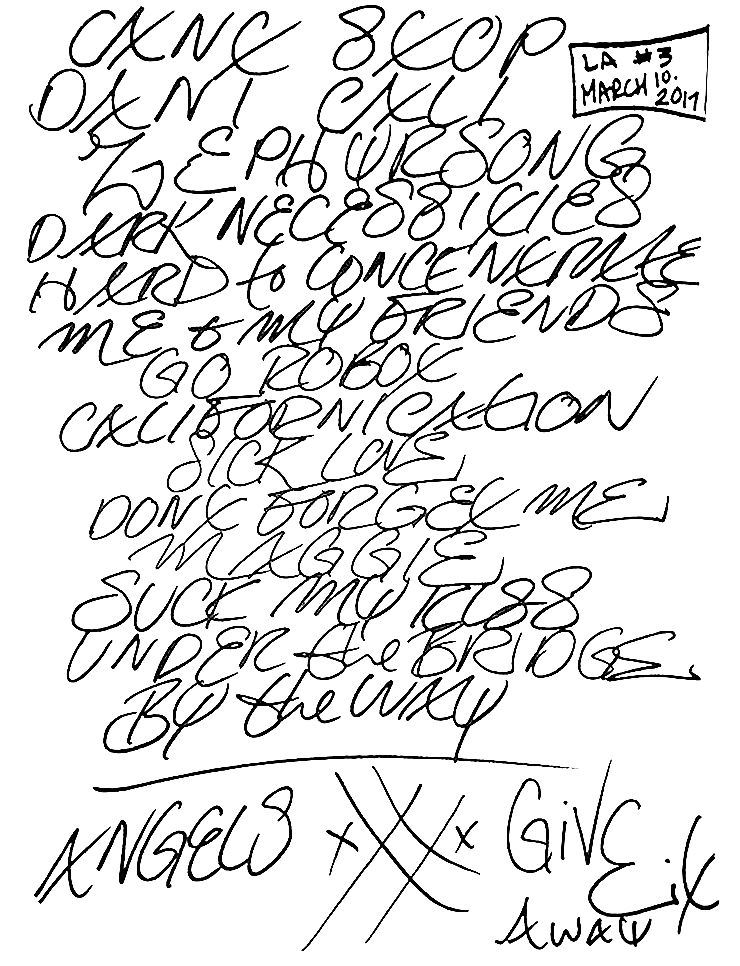 CANT STOP
LA #3
MARCH 10.
2017
DANI CALI
ZEPHYRSONG
DARK NECESSITIES
HARD to CONCENTRATE
ME & MY FRIENDS
GO ROBOT
CALIFORNICATION
SICK LOVE
DONT FORGET ME
MAGGIE
SUCK MY KISS
UNDER the BRIDGE
BY the WAY
ANGELS x x GiVE
Eit
AWAY